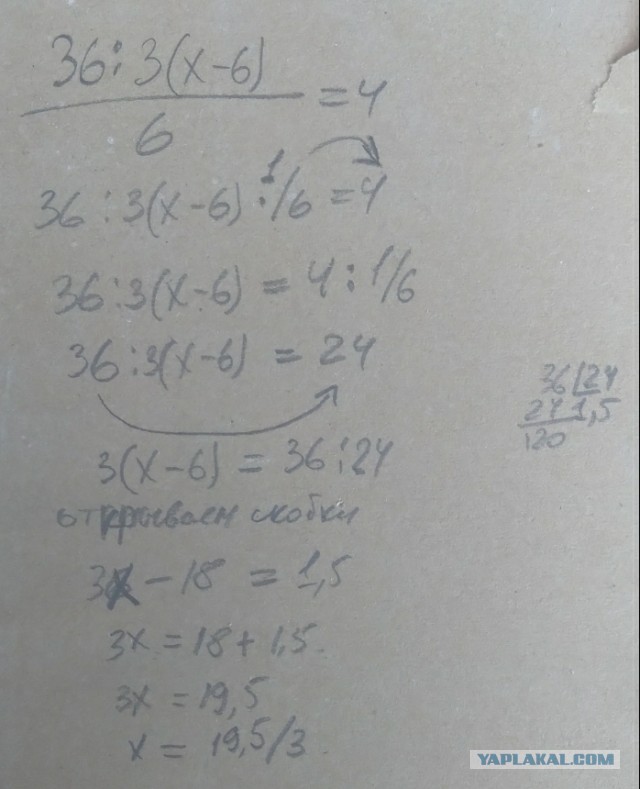 36:3(x-6)
6
=4
36:3(x-6)·1/6=4
36:3(x-6)=4:1/6
36:3(x-6)=24
36 24
24 1,5
120
3(x-6)=36:24
открываем скобки
3x-18=1,5
3x=18+1,5
3x=19,5
x=19,5/3
YAPLAKAL.COM